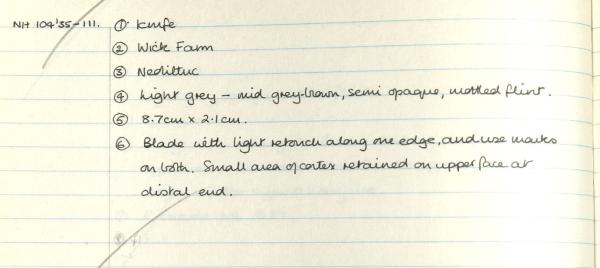 NH 104'35-111. ① Knife
② Wick Farm
③ Neolithic
④ Light grey – mid grey-brown, semi opaque, mottled flint.
⑤ 8.7cm x 2.1cm.
⑥ Blade with light retouch along one edge, and use marks
on both. Small area of cortex retained on upper face at
distal end.